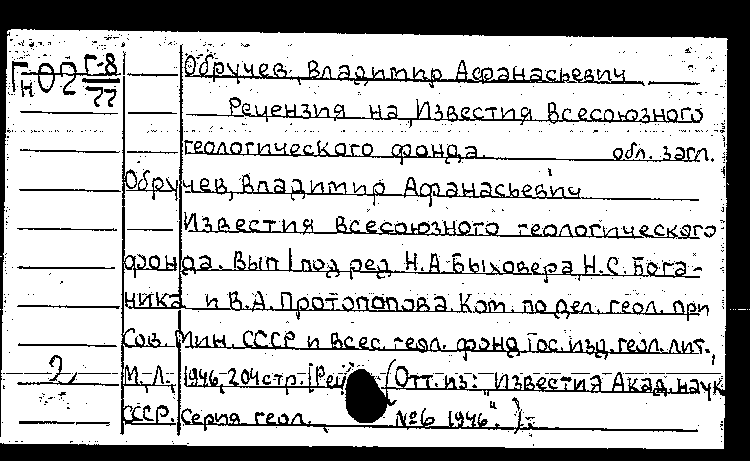 Гн02 Г-8/77
Обручев, Владимир Афанасьевич
Рецензия на Известия Всесоюзного
геологического фонда. обл. загл.
Обручев, Владимир Афанасьевич
Известия Всесоюзного геологического
фонда. Вып 1 под ред Н.А.Быховера, Н.С. Бога-
ника и В.А. Протопопова. Ком. по дел. геол. при
Сов. Мин. СССР и Всес. геол. фонд Гос. изд. геол. лит.,
2 М., Л., 1946, 204 стр. [Рец (Отт. из: "Известия Акад. наук
СССР. Серия геол. №6 1946".)